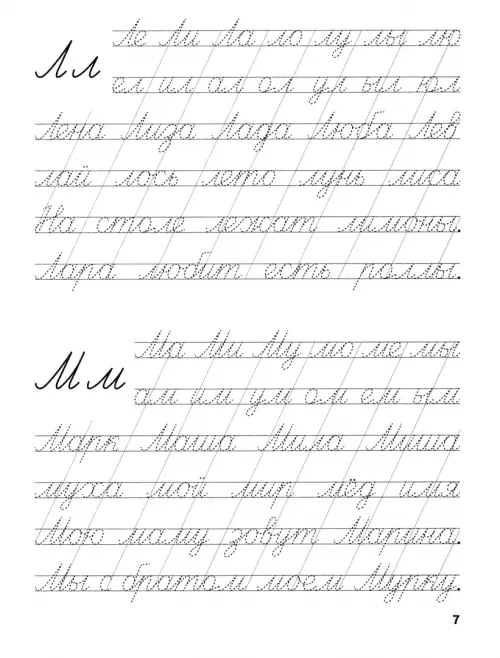 Лл
Ле Ли Ла ло лу лы лю
ел ил ал ол ул ыл юл
Лена Лиза Лада Люба Лев
лай лось лето лунь лиса
На столе лежат лимоны.
Лара любит есть роллы.
Мм
Ма Ми Му мо ме мы
ам им ум ом ем ым
Марк Маша Мила Миша
муха мой мир мёд имя
Мою маму зовут Марина.
Мы с братом моем Мурку.
7